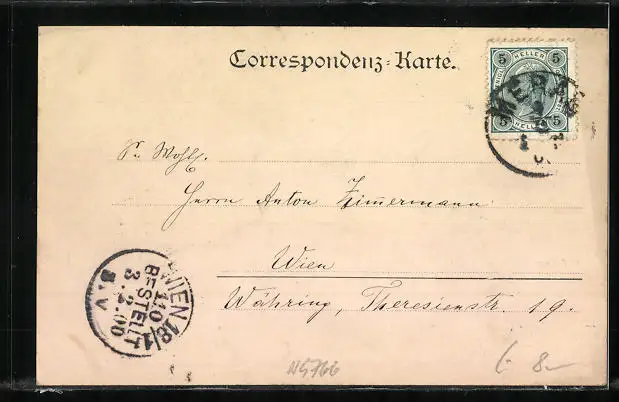 Correspondenz-Karte.
5 HELLER 5
MERAN
5 HELLER 5
Sr. Wohlg.
Herrn Anton Zimermann
Wien
Währing, Theresienstr. 19.
WIEN 18/1
110
BESTELLT
3.2.00
8.V
N5766
8–